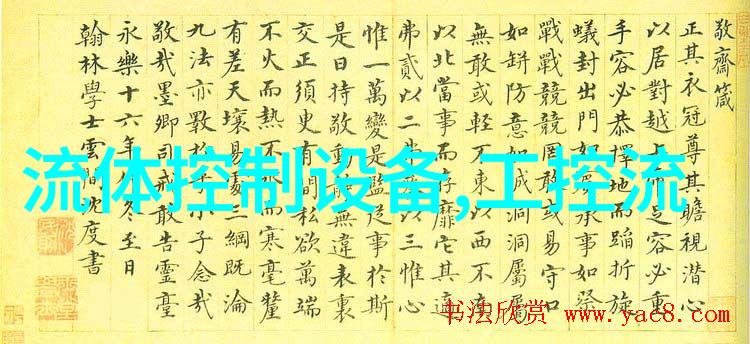 敬齋箴
正其衣冠尊其瞻視潛心
以居對越上足容必重
手容必恭擇地而蹈折旋
蟻封出門如承事如祭
戰戰兢兢罔敢或易守口
如缾防意如城洞洞屬屬
無敢或輕不東以西不南
以北當事而存靡它其適
弗貳以二以三惟心
惟一萬變是監從事於斯
是日持敬動無違表裏
交正須臾有間私欲萬端
不火而熱不而寒毫釐
有差天壤易處三綱既淪
九法亦斁於小子念哉
敬哉墨卿司戒敢告靈臺
永樂十六年冬至日
翰林學士雲間沈度書
流体控制设备,工控流
书法欣赏
www.yac8.com